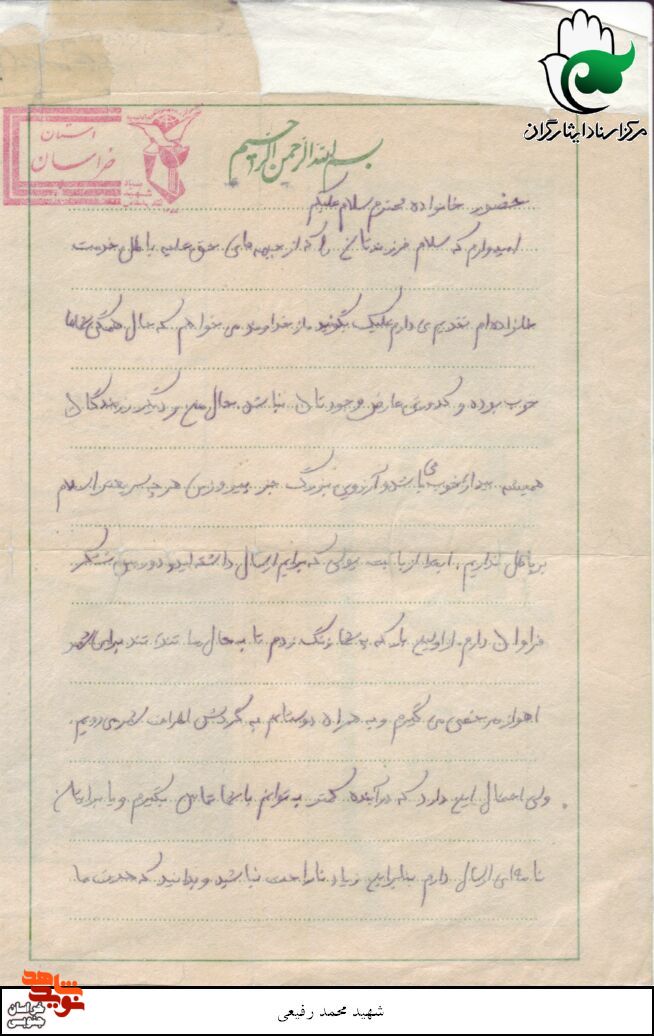 مرکز اسناد ایثارگران
استان
خراسان
بسم الله الرحمن الرحیم
حضور خانواده محترم سلام علیکم
امیدوارم که سلام فرزندتان را که از جبهه های حق علیه باطل خدمت
خانواده ام تقدیم می دارم علیک بگوئید و از خداوند می خواهم که حال همگی شما
خوب بوده و کدورتی عارض وجودتان نباشد حال من و دیگر رزمندگان
همیشه بیدار خوب می باشد و آرزویی بزرگ جز پیروزی هر چه سریعتر اسلام
بر باطل نداریم. ابتدا از بابت پولی که برایم ارسال داشته اید و دوربین تشکر
فراوان دارم. از اولین بار که به شما زنگ زدم تا به حال ما تند تند برای شهر
اهواز مرخصی می گیرم و به همراه دوستانم به گردش اطراف شهر می رویم.
ولی احتمال این دارد که در آینده کمتر بتوانم با شما تماس بگیرم و یا برایتان
نامه ای ارسال دارم بنابراین زیاد ناراحت نباشید و بدانید که خدمت ما
شاهد
نوید
خراسان
جنوبی
شهید محمد رفیعی